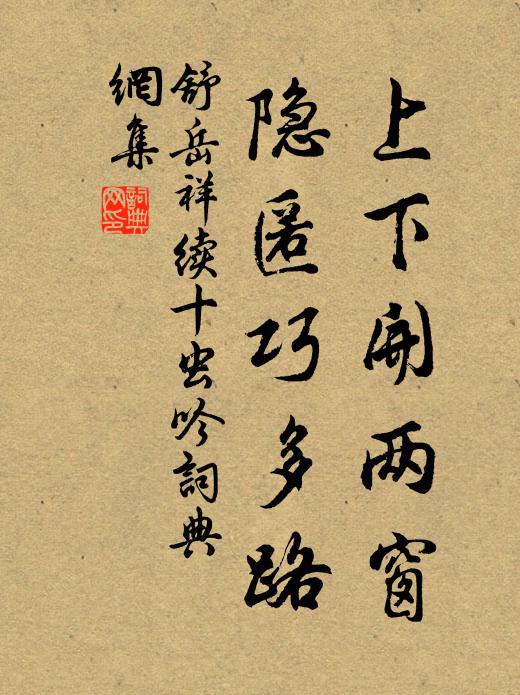 上下開两窗
隐匿巧多路
舒岳祥续十虫吟詞典
網集
詞典
网印